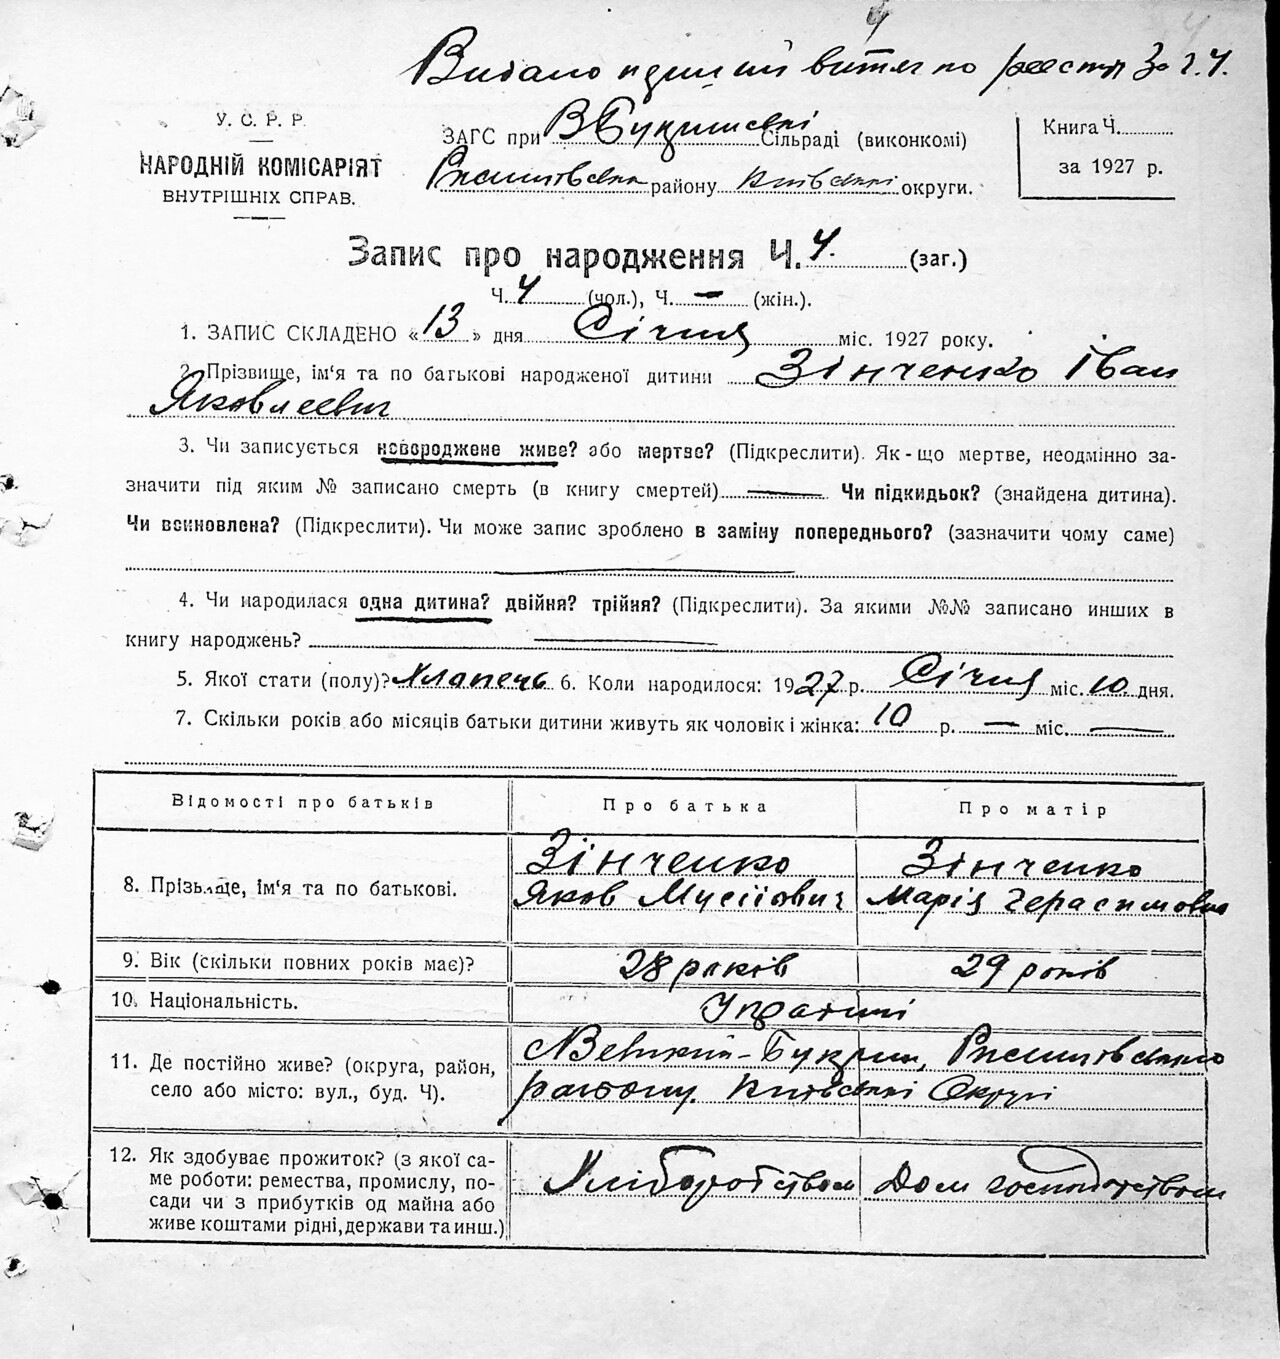 4
Видано п витяг по реєстр За Ч. 4.
У. С. Р. Р.
НАРОДНІЙ КОМІСАРІЯТ
ВНУТРІШНІХ СПРАВ.
ЗАГС при В Букринській Сільраді (виконкомі)
Ржищівського району Київської округи.
Книга Ч.
за 1927 р.
Запис про народження Ч. 4. (заг.)
Ч. 4 (чол.), Ч. — (жін.).
1. ЗАПИС СКЛАДЕНО «13» дня Січня міс. 1927 року.
2. Прізвище, ім'я та по багькові народженої дитини Зінченко Іван
Яковлеевич
3. Чи записується новороджене живе? або мертве? (Підкреслити). Як-що мертве, неодмінно за-
значити під яким № записано смерть (в книгу смертей) — Чи підкидьок? (знайдена дитина).
Чи всиновлена? (Підкреслити). Чи може запис зроблено в заміну попереднього? (зазначити чому саме)
4. Чи народилася одна дитина? двійня? трійня? (Підкреслити). За якими №№ записано инших в
книгу народжень? —
5. Якої стати (полу)? Хлапець 6. Коли народилося: 1927 р. Січня міс. 10 дня.
7. Скільки років або місяців батьки дитини живуть як чоловік і жінка: 10 р. — міс. —
Відомості про батьків Про батька Про матір
8. Прізьвище, ім'я та по батькові.
Зінченко Яков Мусійович
Зінченко Марія Герасимовна
9. Вік (скільки повних років має)? 28 років 29 років
10. Національність. Українці
11. Де постійно живе? (округа, район,
село або місто: вул., буд. Ч).
Великий-Букрин, Ржищівського
району. Київської Округи
12. Як здобуває прожиток? (з якої са-
ме роботи: ремества, промислу, по-
сади чи з прибутків од майна або
живе коштами рідні, держави та инш.)
Хліборобством Дом господарством